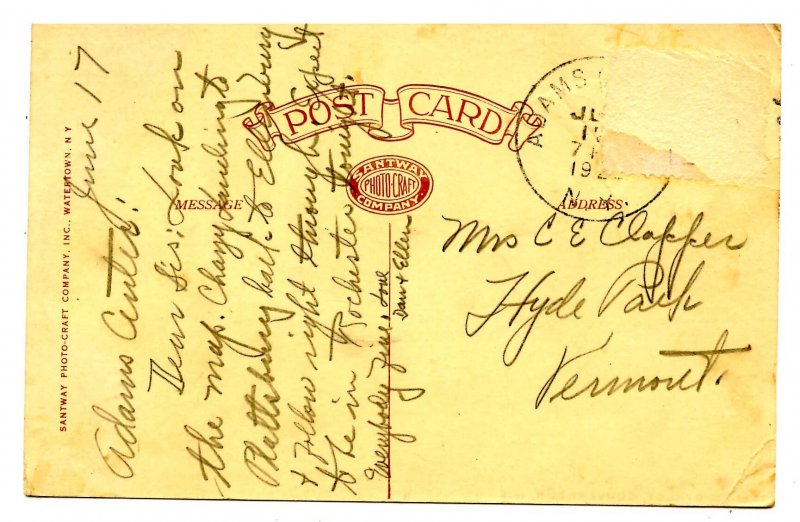 SANTWAY PHOTO-CRAFT COMPANY, INC., WATERTOWN, N.Y.
POST CARD
SANTWAY
PHOTO-CRAFT
COMPANY
MESSAGE
ADDRESS
ADAMS
N.Y.
June 17
Adams Center:
Dear Sis: Look on
the map. Chazy Landing to
Plattsburg back to Ellenburg
& follow right through. Expect
to be in Rochester tonight.
Everybody fine. Love
Dan & Ellen
Mrs C E Clapper
Hyde Park
Vermont.